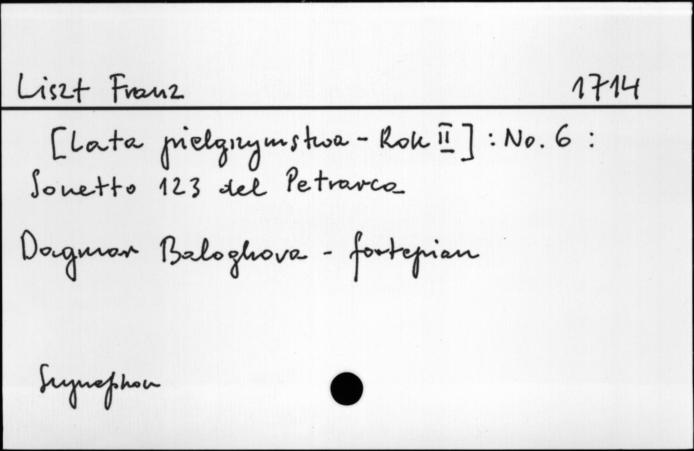 Liszt Franz 1714
[Lata pielgrzymstwa - Rok II] : No. 6 :
Sonetto 123 del Petrarca
Dagmar Baloghova - fortepian